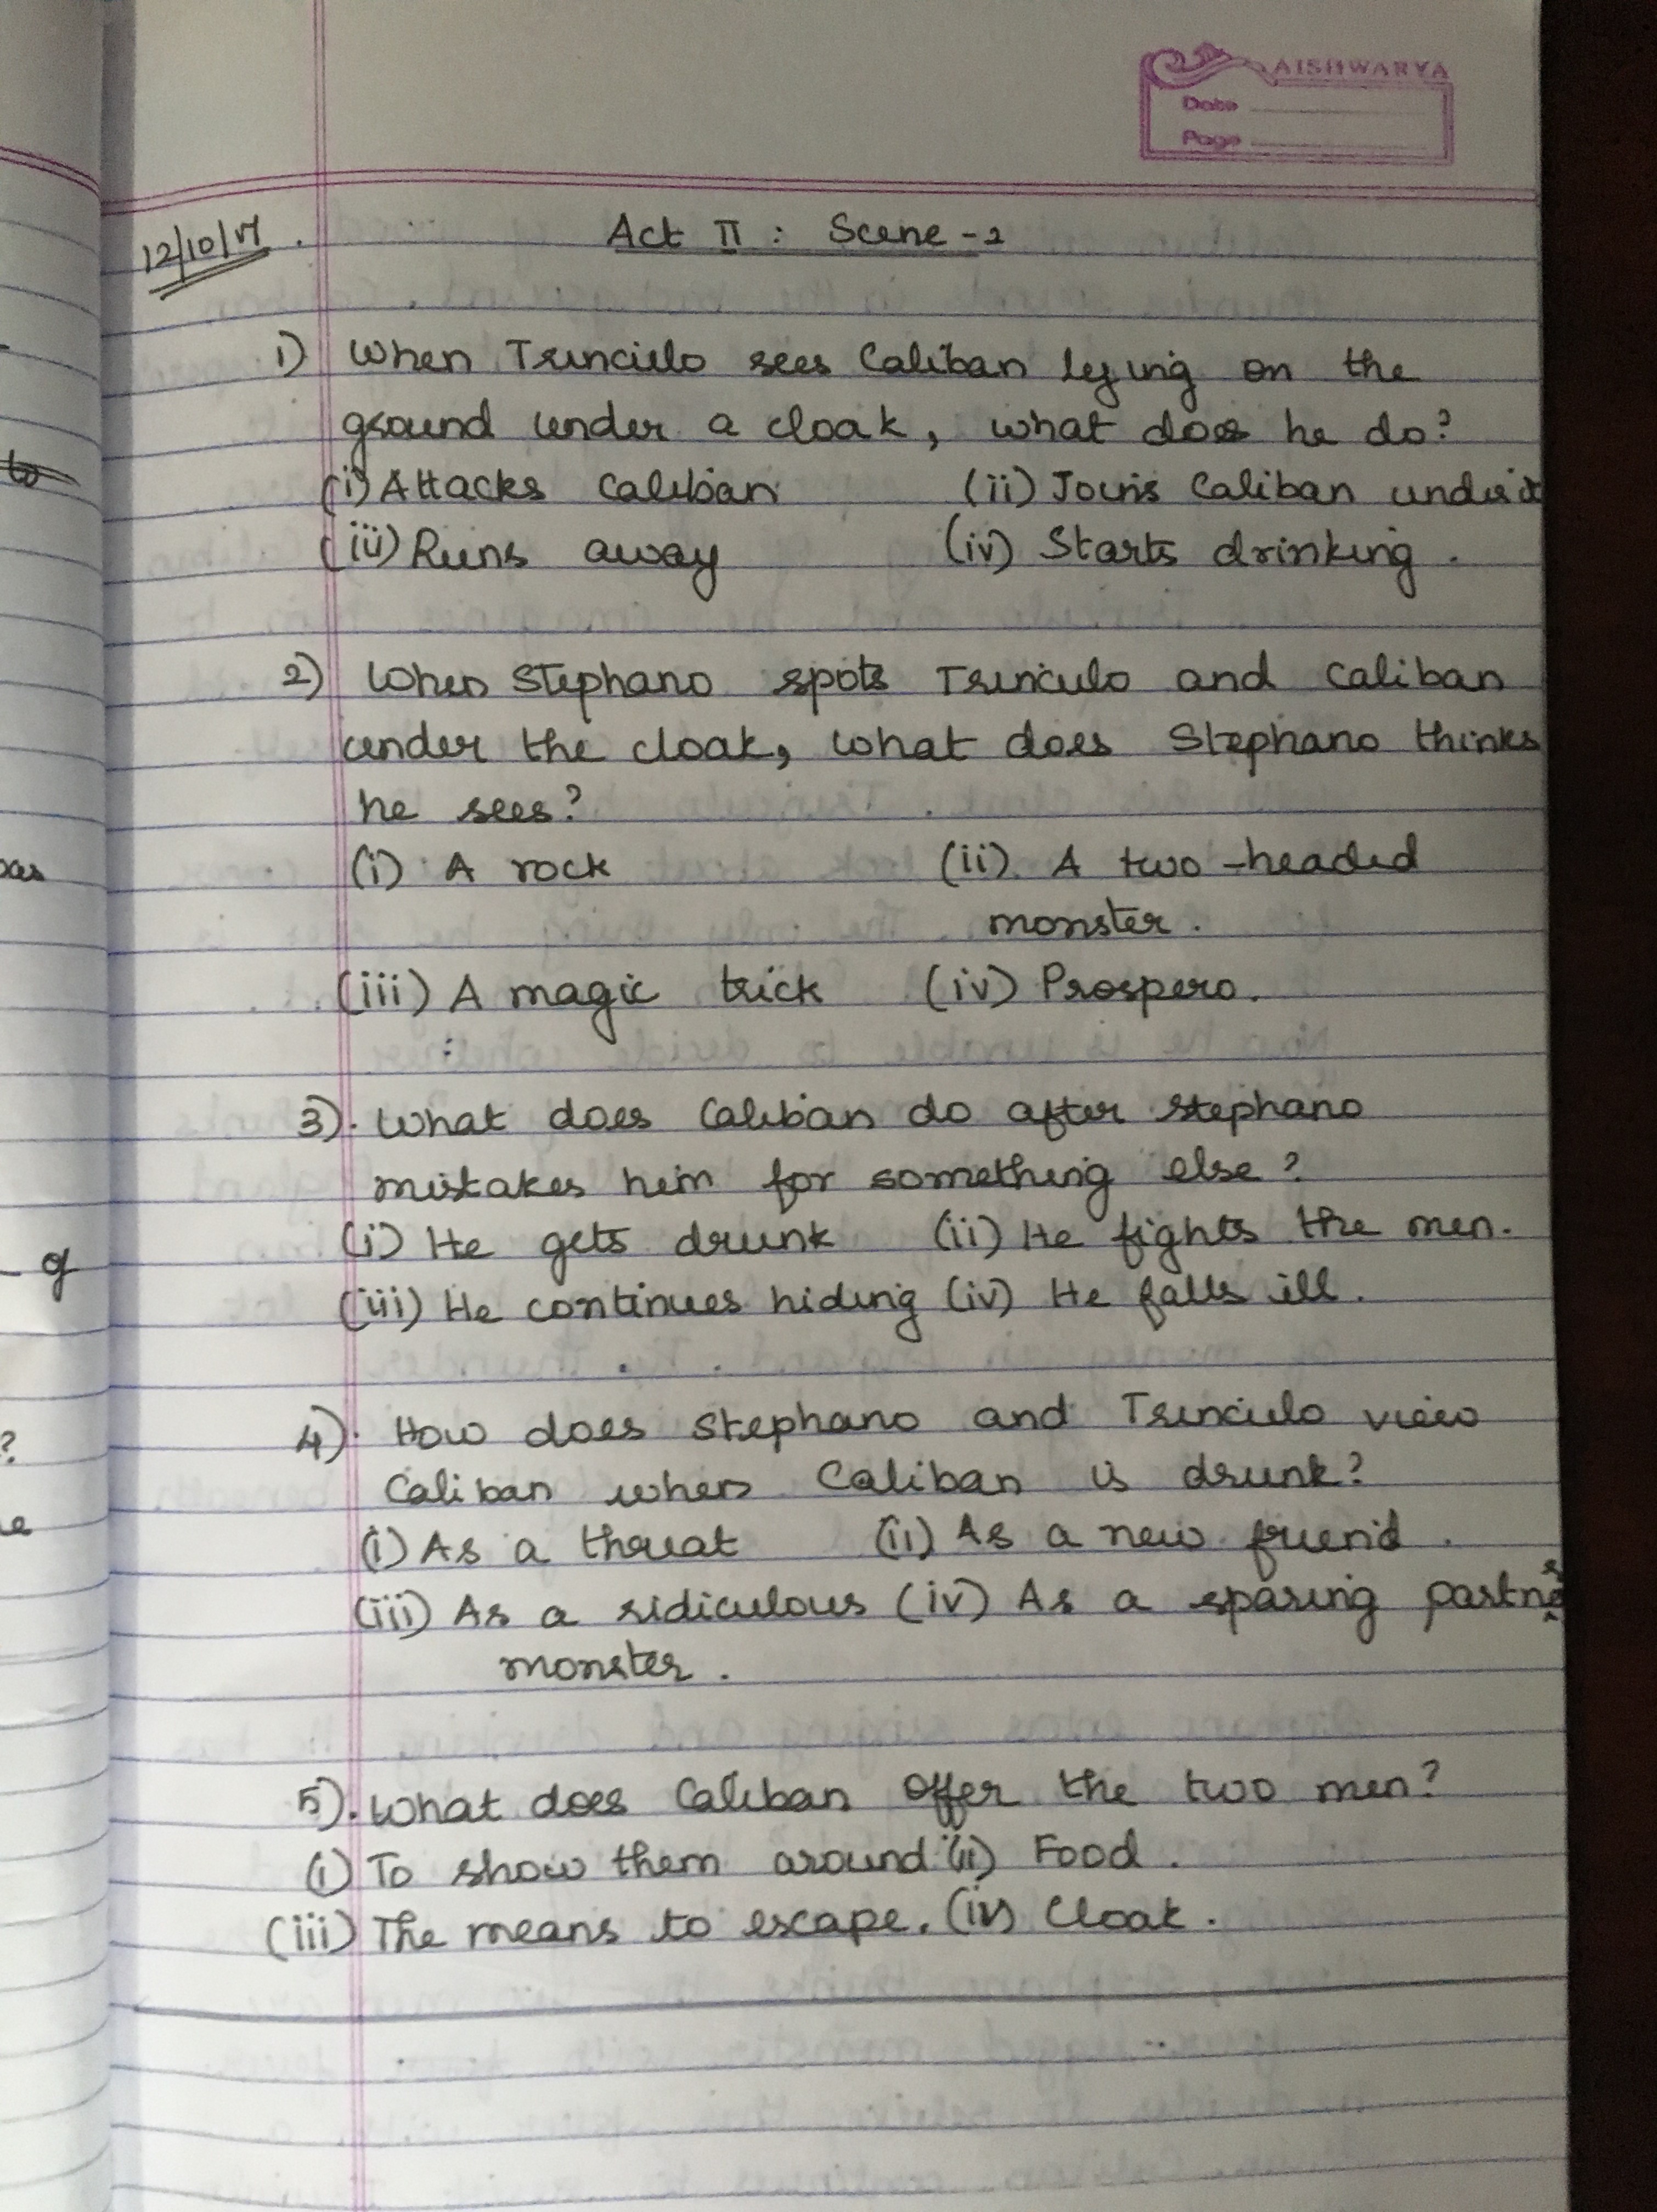 AISHWARYA
Date
Page
12/10/17. Act II : Scene - 2
1) When Trinculo sees Caliban lying on the
ground under a cloak, what does he do?
(i) Attacks Caliban (ii) Joins Caliban under it
(iii) Runs away (iv) Starts drinking.
2) When Stephano spots Trinculo and Caliban
under the cloak, what does Stephano thinks
he sees?
(i) A rock (ii) A two-headed
monster.
(iii) A magic trick (iv) Prospero.
3). What does Caliban do after Stephano
mistakes him for something else?
(i) He gets drunk (ii) He fights the men.
(iii) He continues hiding (iv) He falls ill.
4). How does Stephano and Trinculo view
Caliban when Caliban is drunk?
(i) As a threat (ii) As a new friend.
(iii) As a ridiculous (iv) As a sparing partner
monster.
5). What does Caliban offer the two men?
(i) To show them around (ii) Food.
(iii) The means to escape. (iv) Cloak.
to
of
?